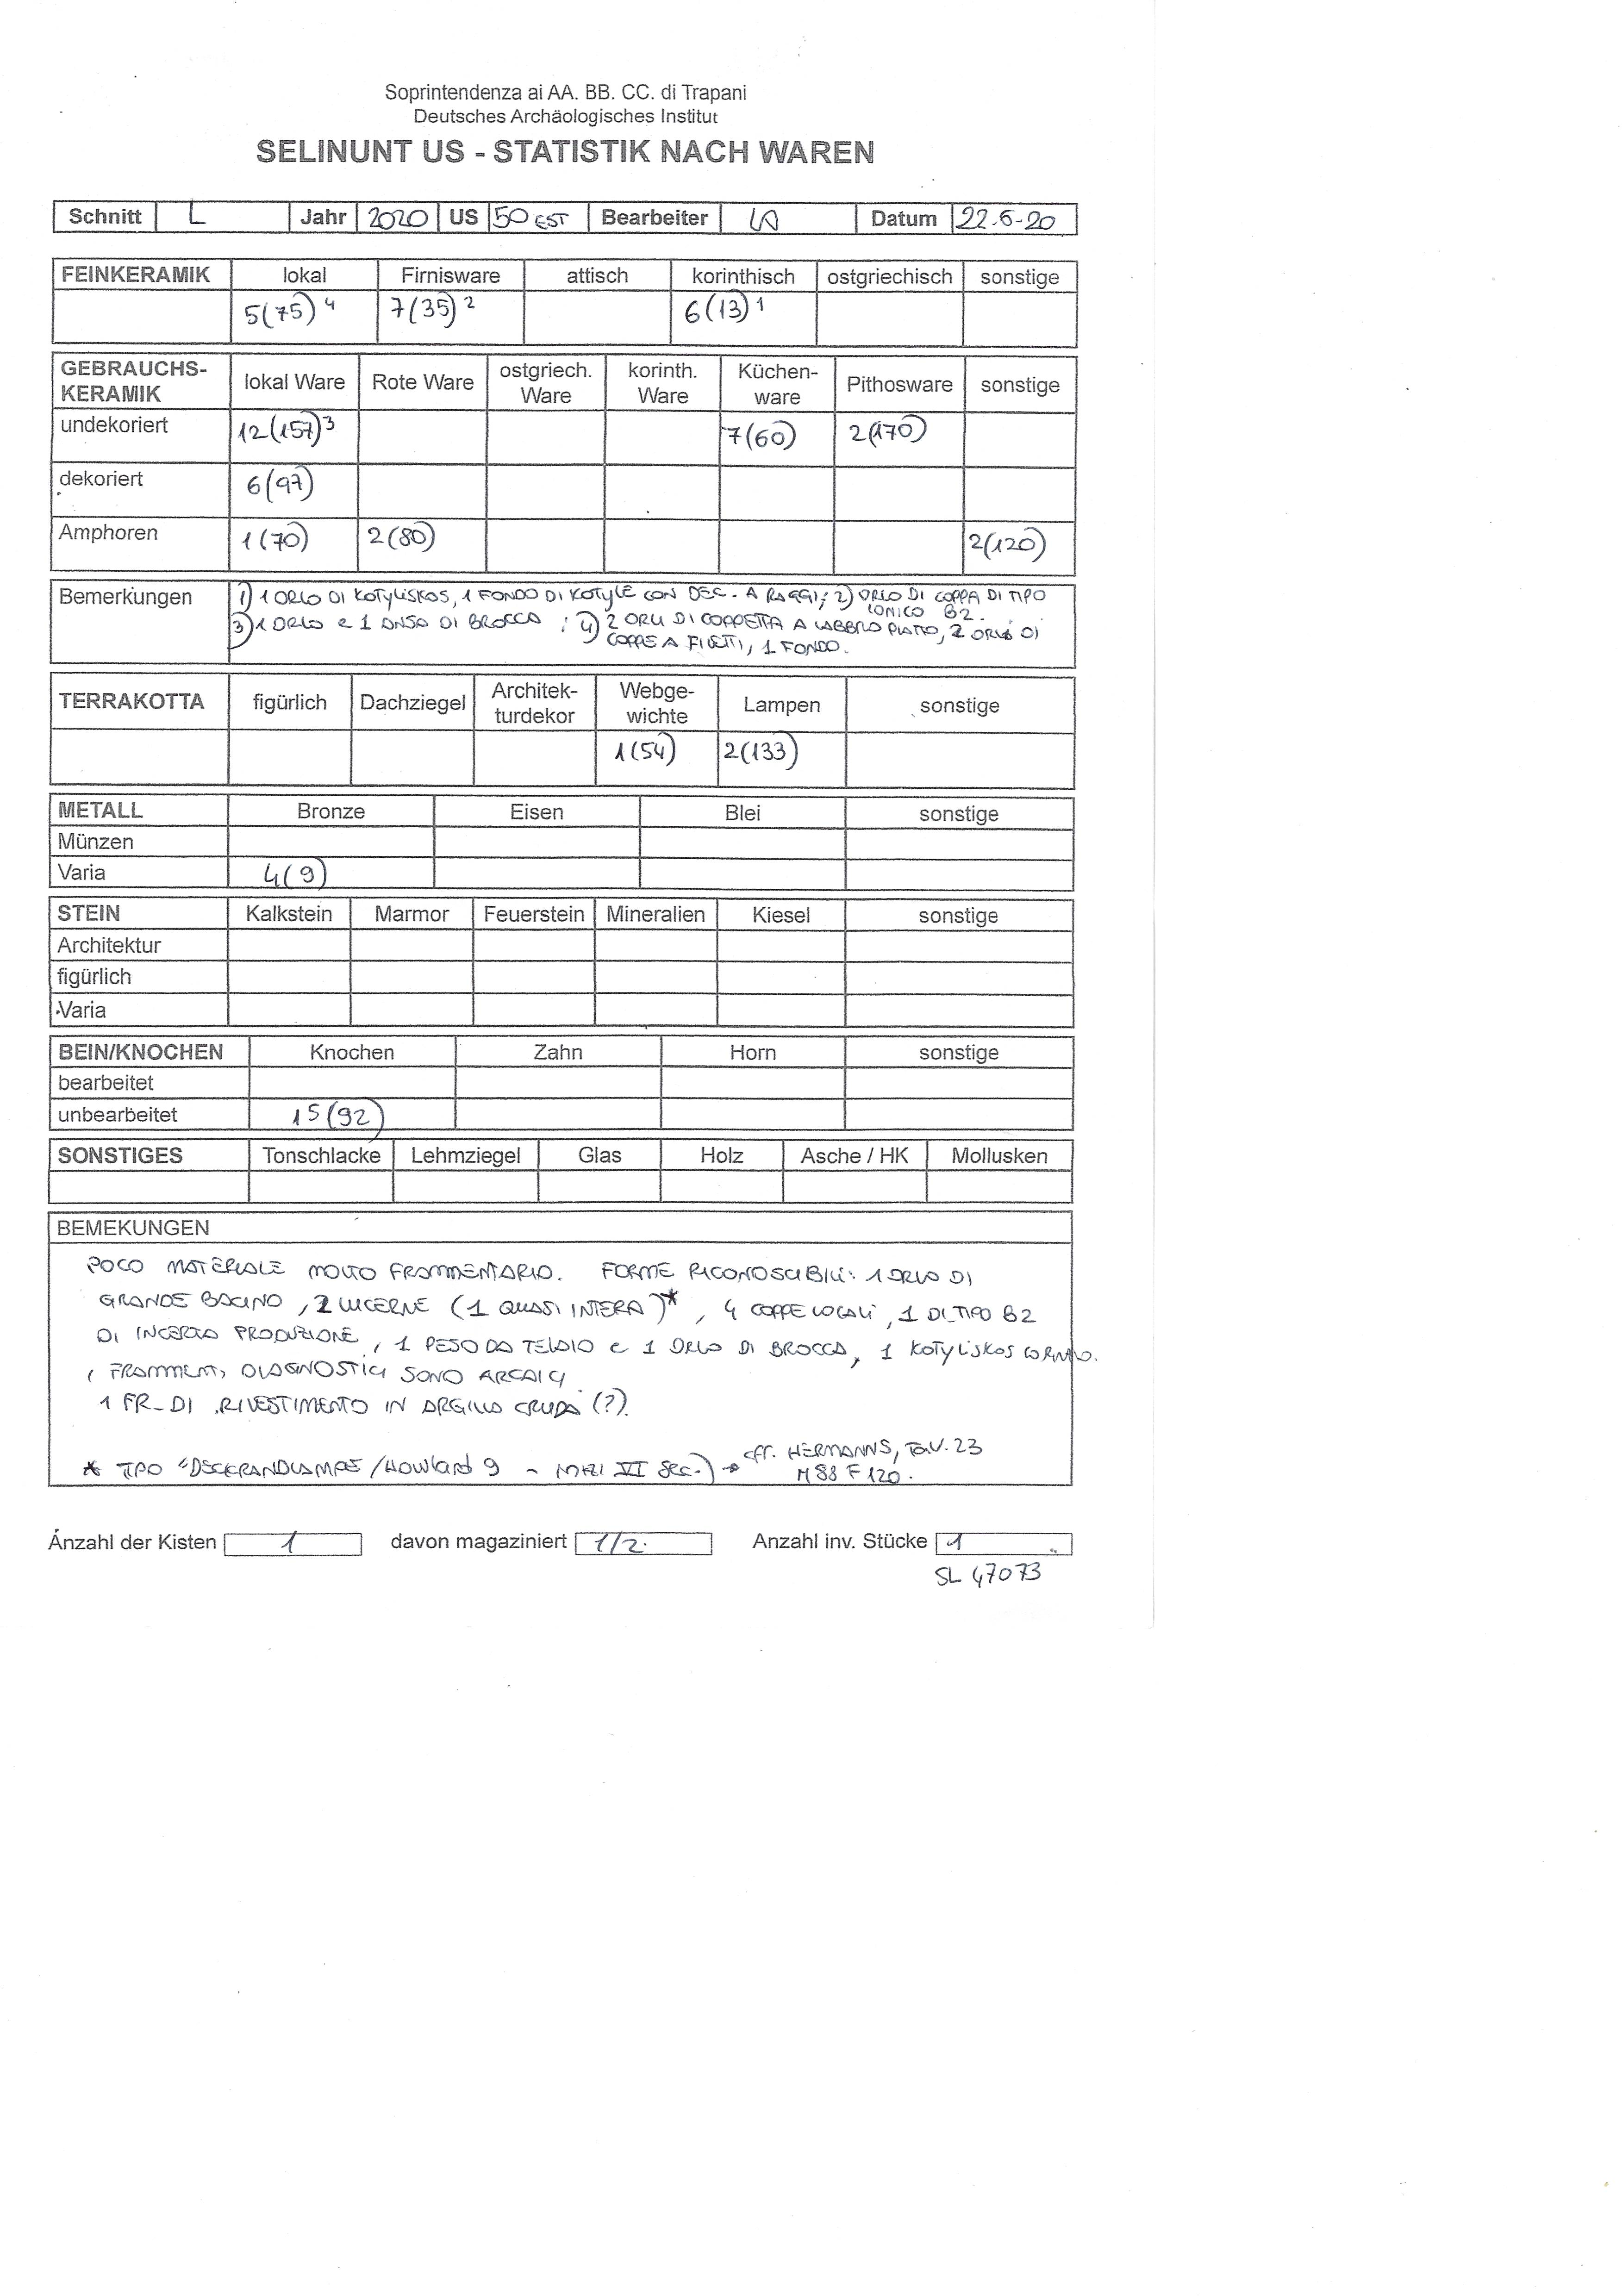 Soprintendenza ai AA. BB. CC. di Trapani
Deutsches Archäologisches Institut
SELINUNT US - STATISTIK NACH WAREN
Schnitt L Jahr 2020 US 50 EST Bearbeiter Datum 22-6-20
FEINKERAMIK lokal Firnisware attisch korinthisch ostgriechisch sonstige
5(75)4 7(35)2 6(13)1
GEBRAUCHS-KERAMIK lokal Ware Rote Ware ostgriech. Ware korinth. Ware Küchen-ware Pithosware sonstige
undekoriert 12(157)3 7(60) 2(170)
dekoriert 6(97)
Amphoren 1(70) 2(80) 2(120)
Bemerkungen 1) 1 ORLO DI KOTYLISKOS, 1 FONDO DI KOTYLE CON DEC. A RAGGI; 2) ORLO DI COPPA DI TIPO
IONICO B2.
3) 1 ORLO e 1 ANSA DI BROCCA; 4) 2 ORLI DI COPPETTA A LABBRO PIATTO, 2 ORLI DI
COPPE A FILETTI, 1 FONDO.
TERRAKOTTA figürlich Dachziegel Architek-turdekor Webge-wichte Lampen sonstige
1(54) 2(133)
METALL Bronze Eisen Blei sonstige
Münzen
Varia 4(9)
STEIN Kalkstein Marmor Feuerstein Mineralien Kiesel sonstige
Architektur
figürlich
Varia
BEIN/KNOCHEN Knochen Zahn Horn sonstige
bearbeitet
unbearbeitet 15(92)
SONSTIGES Tonschlacke Lehmziegel Glas Holz Asche / HK Mollusken
BEMEKUNGEN
POCO MATERIALE MOLTO FRAMMENTARIO. FORME RICONOSCIBILI: 1 ORLO DI
GRANDE BACINO, 2 LUCERNE (1 QUASI INTERA)*, 4 COPPE LOCALI, 1 DI TIPO B2
DI INCERTA PRODUZIONE, 1 PESO DA TELAIO e 1 ORLO DI BROCCA, 1 KOTYLISKOS
I FRAMMENTI DIAGNOSTICI SONO ARCAICI.
1 FR. DI RIVESTIMENTO IN ARGILLA CRUDA (?).
* TIPO /HOWLAND 9 VI SEC.) → cfr. HERMANNS, TAV. 23
M 88 F 120.
Anzahl der Kisten 1 davon magaziniert 1/2 Anzahl inv. Stücke 1
SL 47073